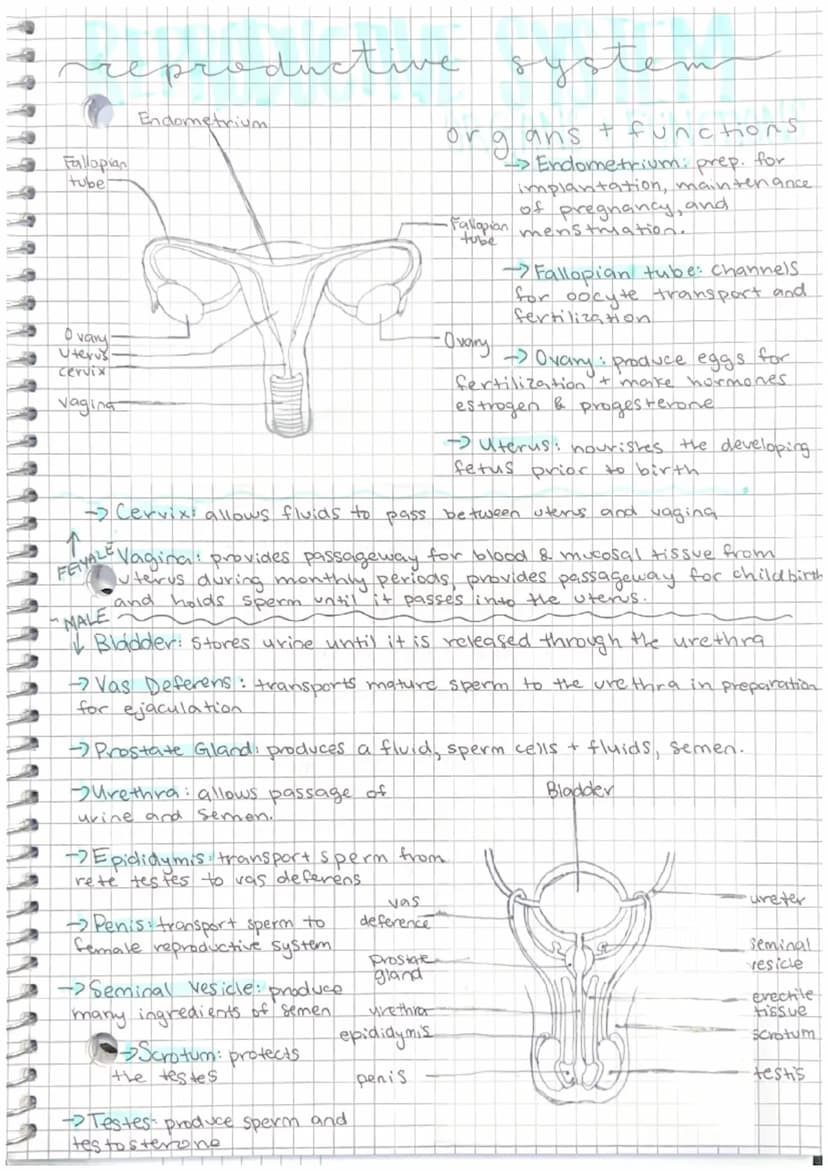 REPRODUCTIVE SYSTEM
reproductive system
organs + functions
Endometrium
Fallopian
tube
Fallopian
tube
Ovary
Uterus
cervix
vagina
Ovary
→ Endometrium: prep. for
implantation, maintenance
of pregnancy, and
menstruation.
→ Fallopian tube: channels
for oocyte transport and
fertilization
→ Ovary: produce eggs for
fertilization + make hormones
estrogen & progesterone
→ Uterus: nourishes the developing
fetus prior to birth
→ Cervix: allows fluids to pass between uterus and vagina
↑
FEMALE
Vagina: provides passageway for blood & mucosal tissue from
uterus during monthly periods, provides passageway for childbirth
and holds sperm until it passes into the uterus.
MALE
↓
Bladder: Stores urine until it is released through the urethra
→ Vas Deferens: transports mature sperm to the urethra in preparation
for ejaculation
→ Prostate Gland: produces a fluid, sperm cells + fluids, semen.
→ Urethra: allows passage of
urine and semen.
→ Epididymis: transport sperm from
rete testes to vas deferens
→ Penis: transport sperm to
female reproductive system
→ Seminal Vesicle: produce
many ingredients of semen
→ Scrotum: protects
the testes
→ Testes: produce sperm and
testosterone
Bladder
vas
deference
prostate
gland
urethra
epididymis
penis
ureter
seminal
vesicle
erectile
tissue
scrotum
testis